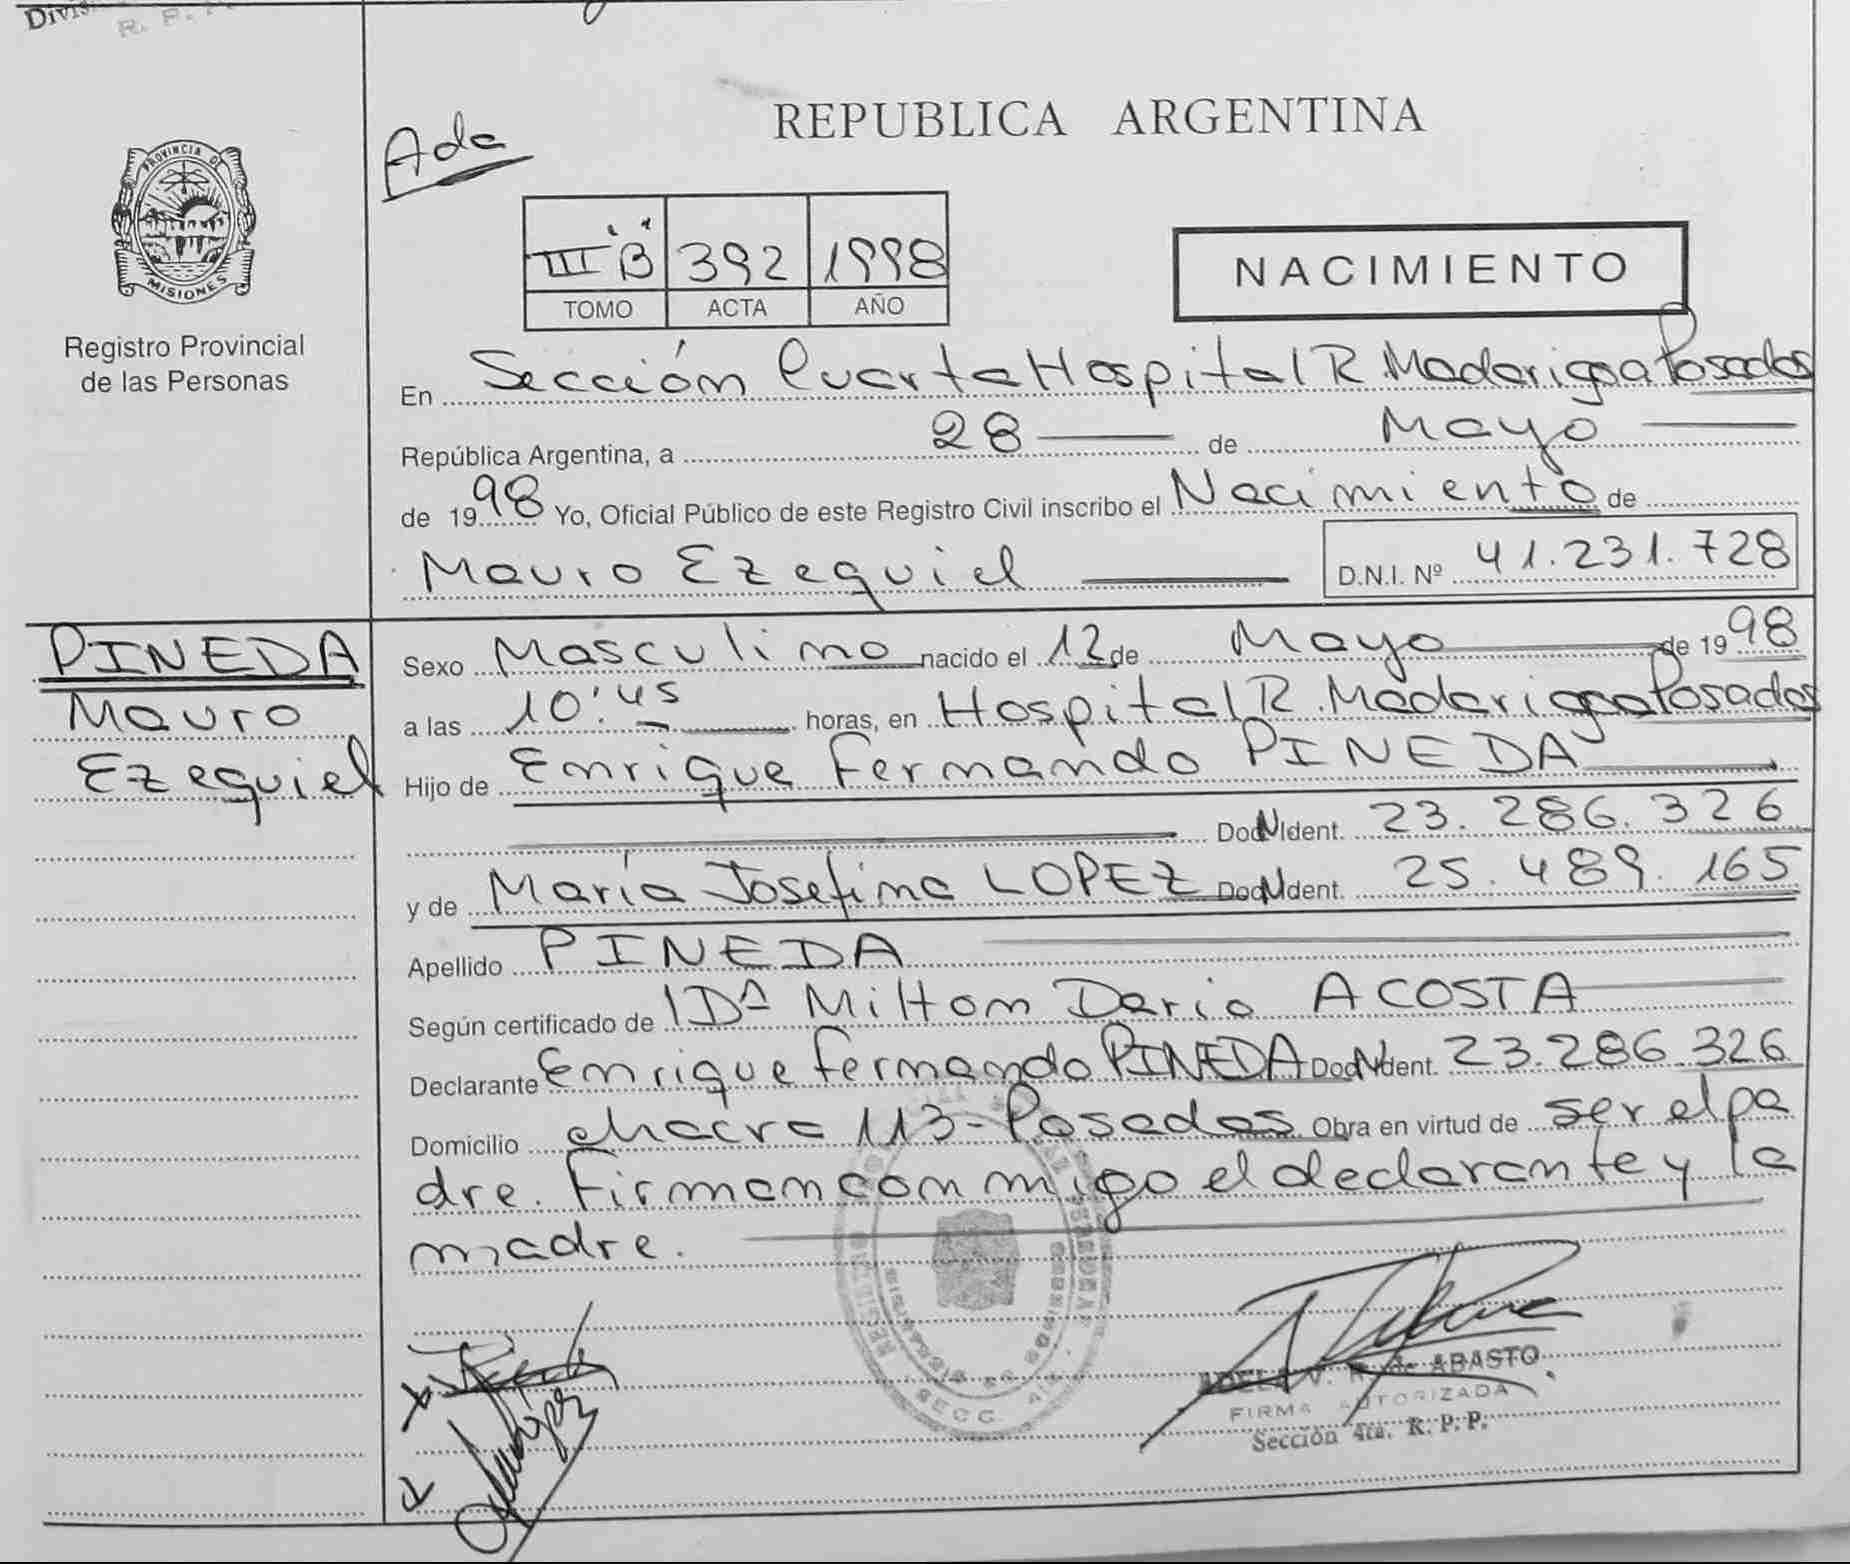 R. P. P.
REPUBLICA ARGENTINA
Ada
PROVINCIA DE
MISIONES
Registro Provincial
de las Personas
III "B" 392 1998
TOMO ACTA AÑO
NACIMIENTO
En Sección Cuarta Hospital R. Madariaga Posadas
República Argentina, a 28 de Mayo
de 1998 Yo, Oficial Público de este Registro Civil inscribo el Nacimiento de
Mauro Ezequiel D.N.I. Nº 41.231.728
PINEDA
Mauro
Ezequiel
Sexo Masculino nacido el 12 de Mayo de 1998
a las 10:45 horas, en Hospital R. Madariaga Posadas
Hijo de Enrique Fernando PINEDA
Doc N Ident. 23.286.326
y de María Josefina LOPEZ Doc N Ident. 25.489.165
Apellido PINEDA
Según certificado de Milton Dario ACOSTA
Declarante Enrique Fernando PINEDA Doc N Ident. 23.286.326
Domicilio chacra 113-Posadas Obra en virtud de ser el pa
dre. Firman con migo el declarante y la
madre.
ADELA V. de ABASTO
FIRMA AUTORIZADA
Sección 4ta. R. P. P.